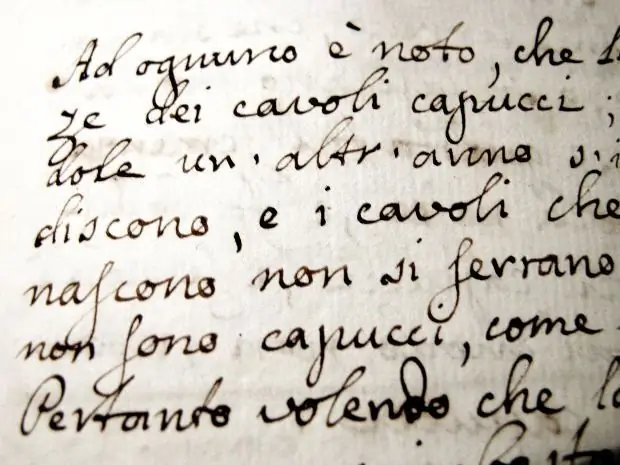 Ad ognuno è noto, che l
ze dei cavoli capucci;
dole un' altr' anno s'i
discono, e i cavoli che
naſcono non si ſerrano
non ſono capucci, come
Pertanto volendo che la